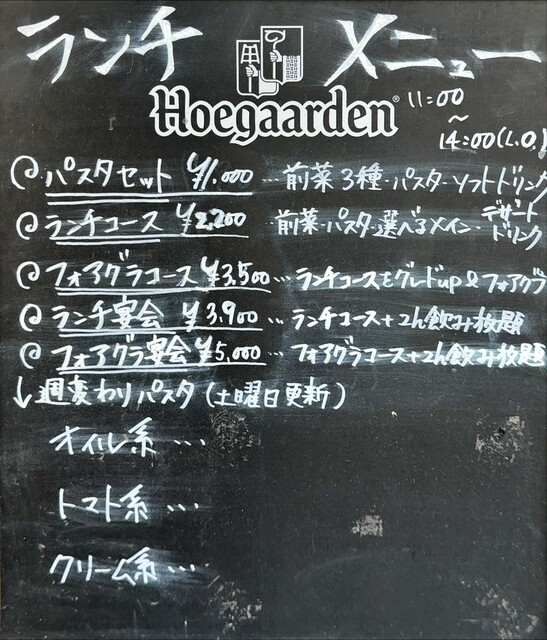 ランチ メニュー
Hoegaarden®
11:00
~
14:00(L.O.)
パスタセット ¥1,000 … 前菜3種・パスタ・ソフトドリンク
ランチコース ¥2,200 前菜・パスタ・選べるメイン・デザート ドリンク
フォアグラコース ¥3,500 … ランチコースをグレードup&フォアグラ
ランチ宴会 ¥3,900 … ランチコース+2h飲み放題
フォアグラ宴会 ¥5,000 … フォアグラコース+2h飲み放題
↓週変わりパスタ(土曜日更新)
オイル系 …
トマト系 …
クリーム系 …